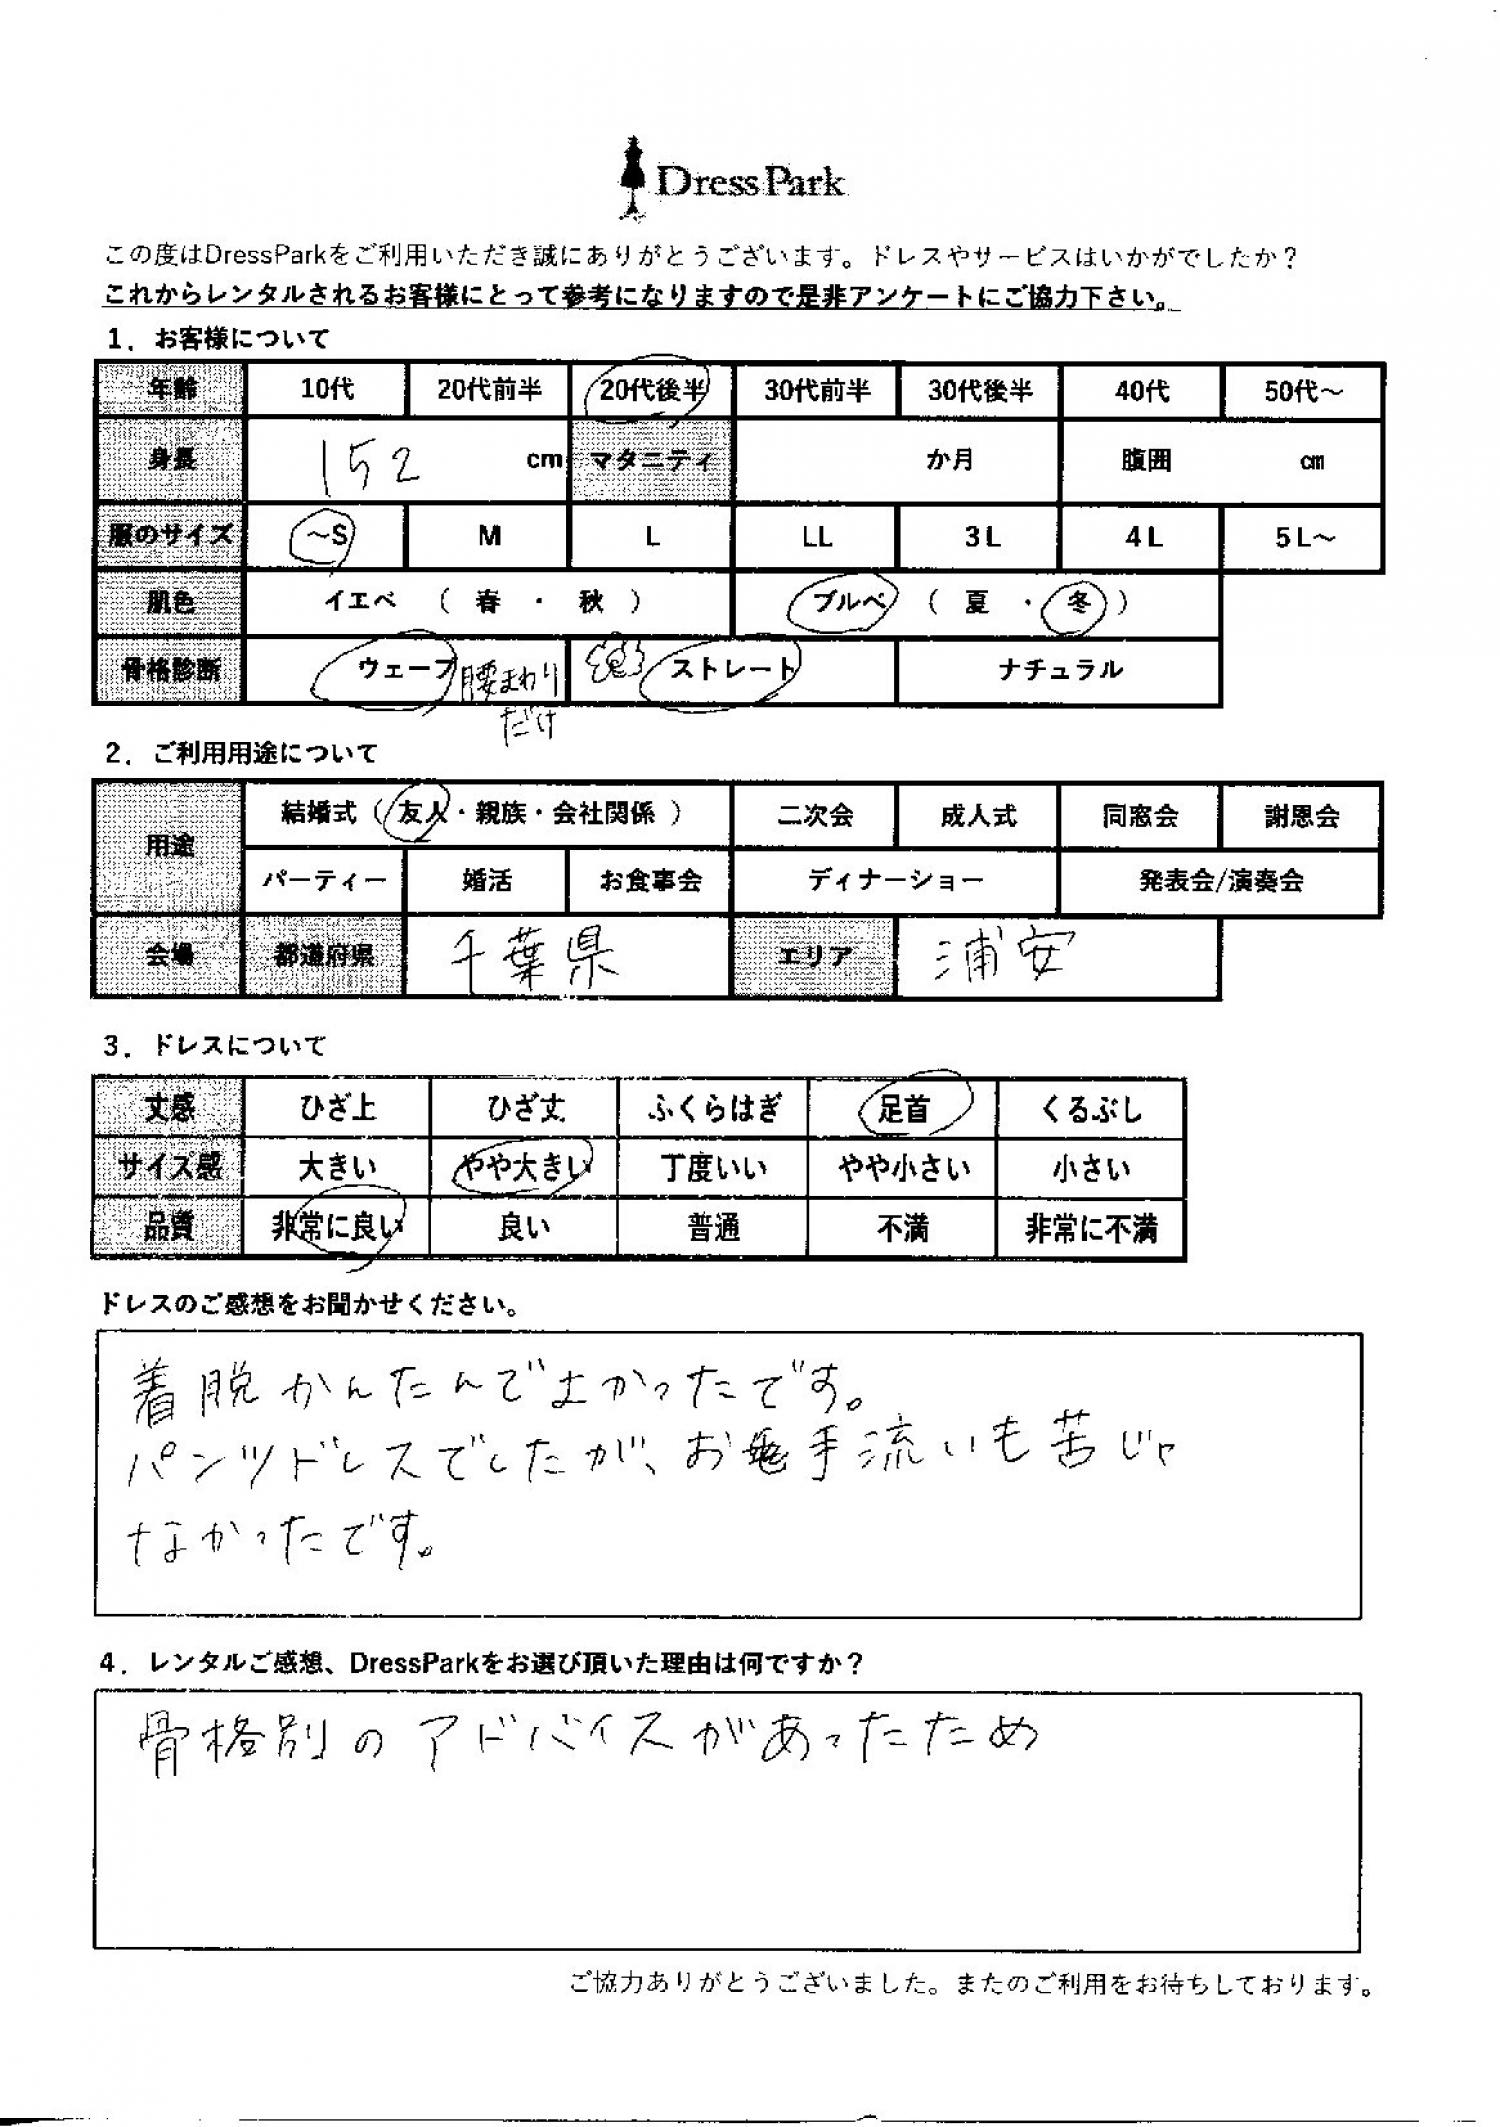 DressPark
この度はDressParkをご利用いただき誠にありがとうございます。ドレスやサービスはいかがでしたか？
これからレンタルされるお客様にとって参考になりますので是非アンケートにご協力下さい。
1．お客様について
年齢 10代 20代前半 20代後半 30代前半 30代後半 40代 50代～
身長 152 cm マタニティ か月 腹囲 cm
服のサイズ ～S M L LL 3L 4L 5L～
肌色 イエベ （ 春 ・ 秋 ） ブルベ （ 夏 ・ 冬 ）
骨格診断 ウェーブ 腰まわり ストレート ナチュラル
だけ
2．ご利用用途について
用途 結婚式（ 友人・親族・会社関係 ） 二次会 成人式 同窓会 謝恩会
パーティー 婚活 お食事会 ディナーショー 発表会/演奏会
会場 都道府県 千葉県 エリア 浦安
3．ドレスについて
丈感 ひざ上 ひざ丈 ふくらはぎ 足首 くるぶし
サイズ感 大きい やや大きい 丁度いい やや小さい 小さい
品質 非常に良い 良い 普通 不満 非常に不満
ドレスのご感想をお聞かせください。
着脱かんたんでよかったです。
パンツドレスでしたが、お手流いも苦じゃ
なかったです。
4．レンタルご感想、DressParkをお選び頂いた理由は何ですか？
骨格別のアドバイスがあったため
ご協力ありがとうございました。またのご利用をお待ちしております。